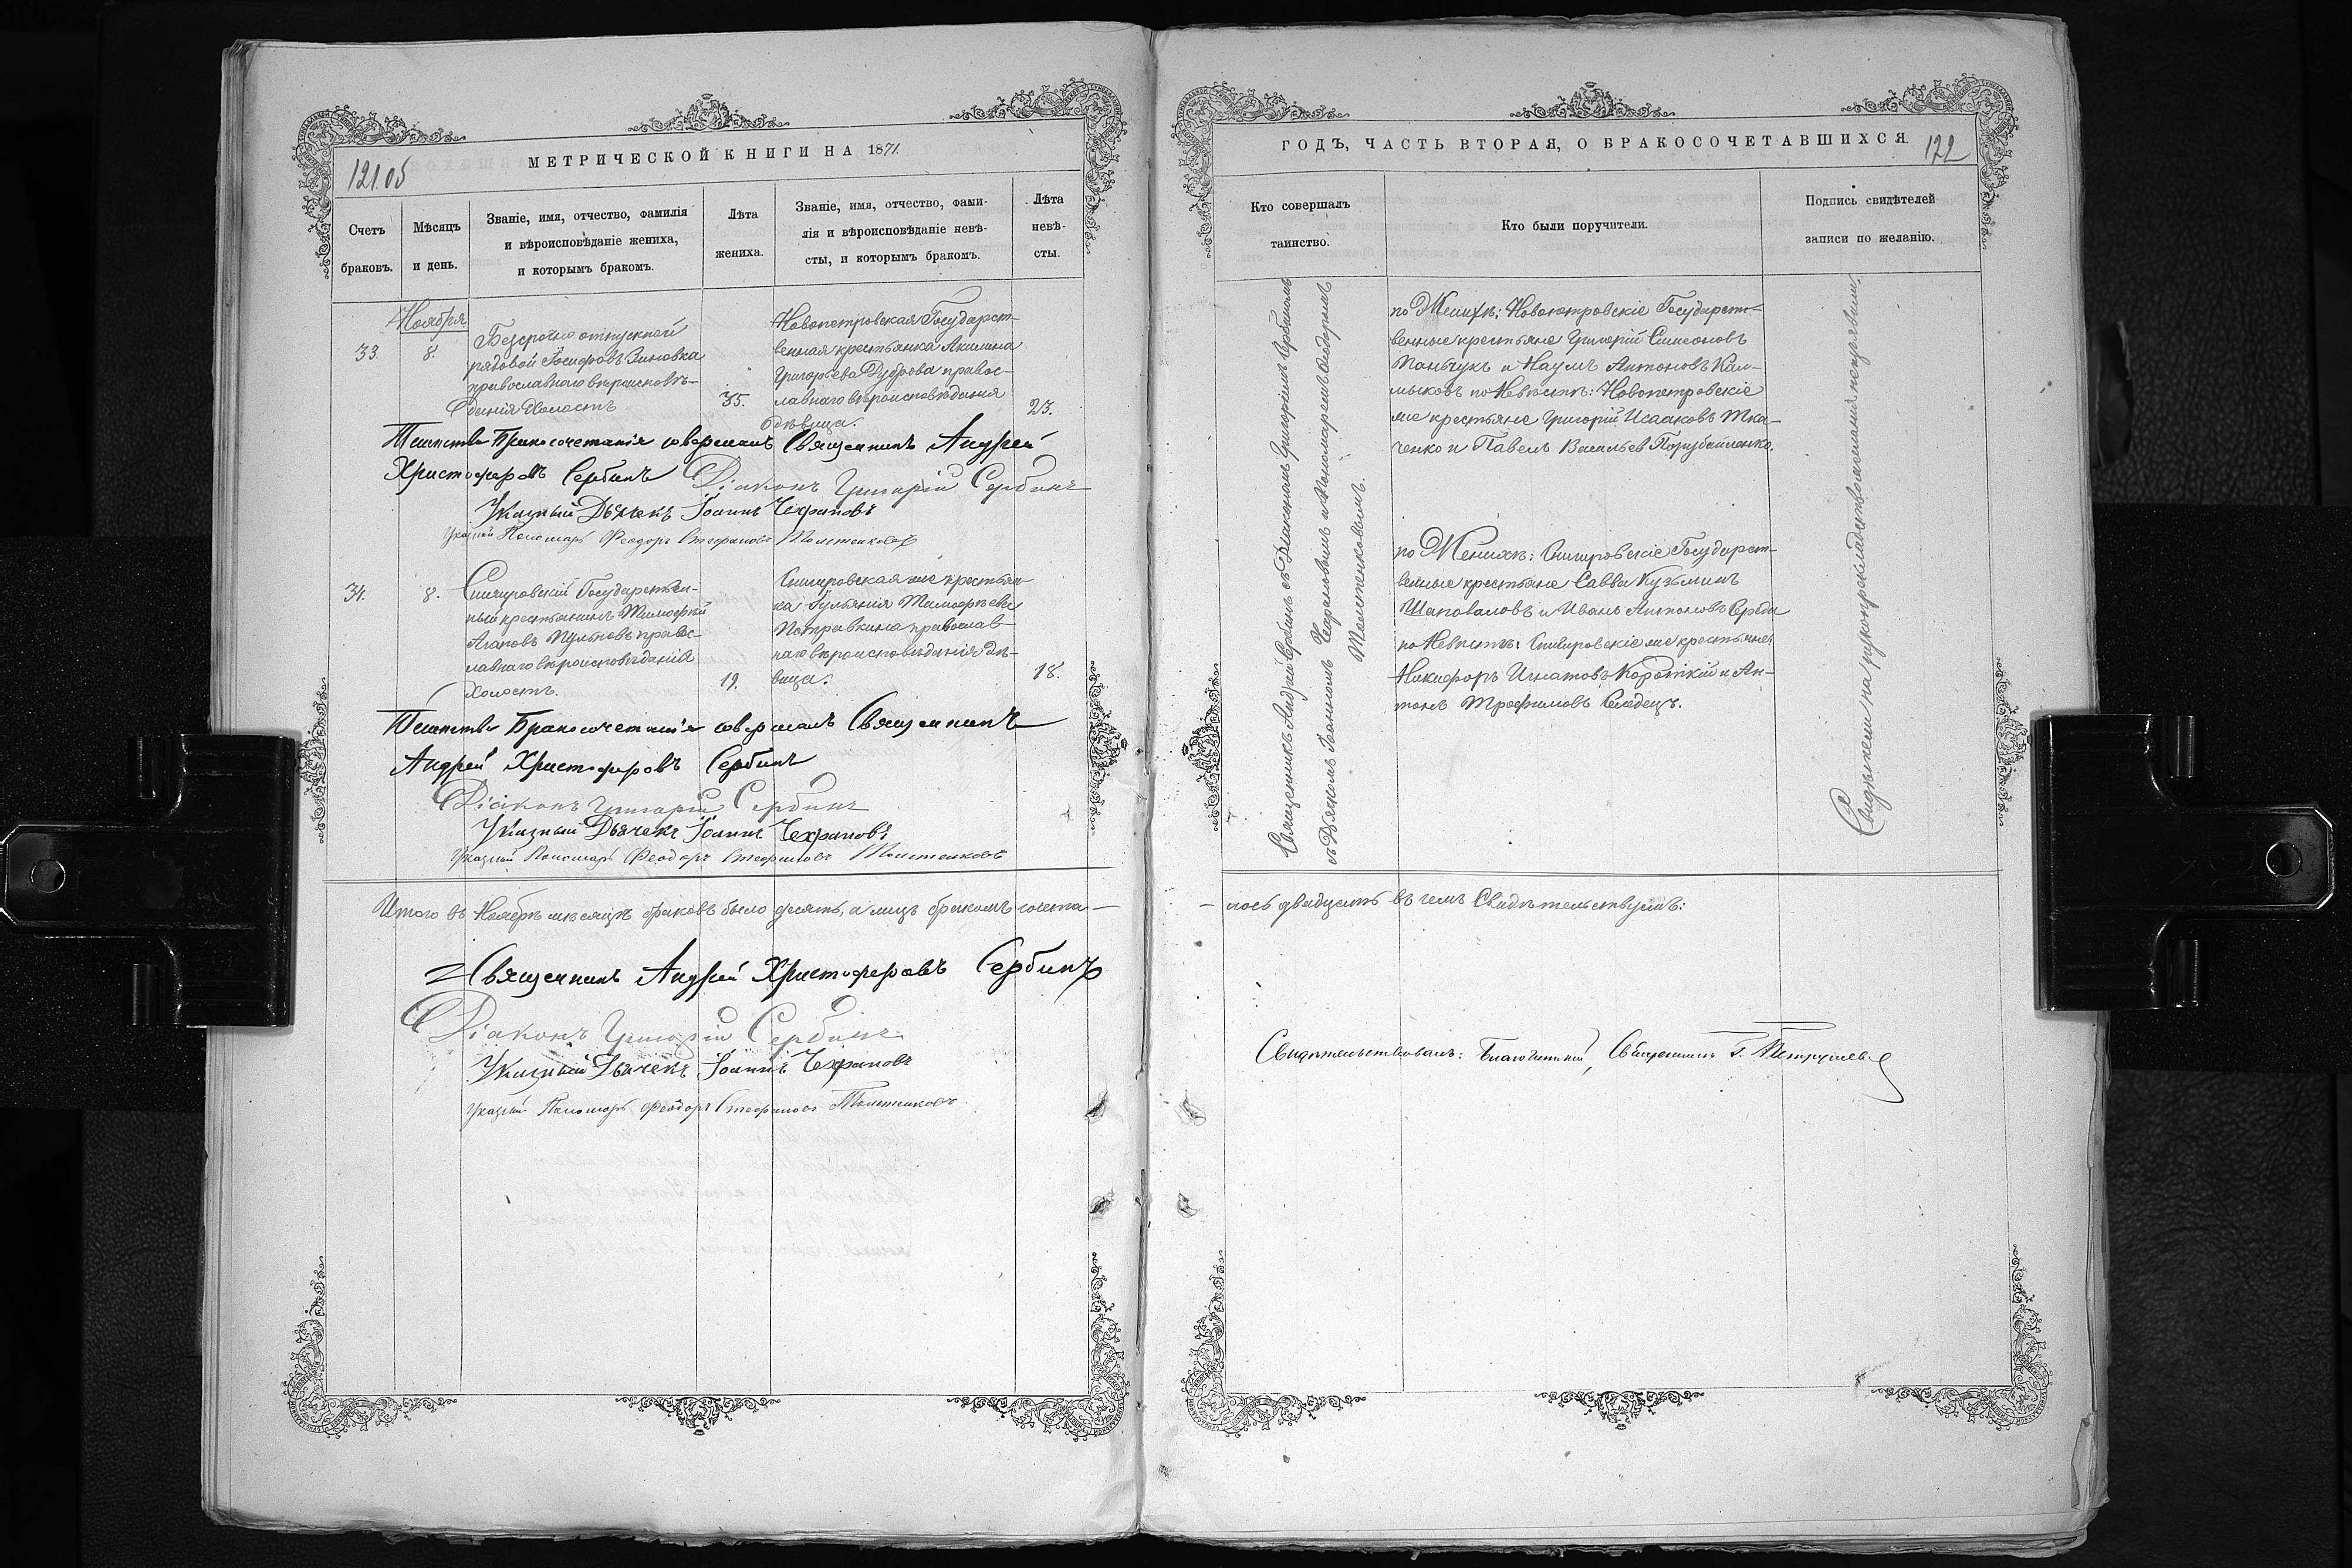 121.об
МЕТРИЧЕСКОЙ КНИГИ НА 1871.
Счетъ браковъ.
Мѣсяцъ и день.
Званіе, имя, отчество, фамилія и вѣроисповѣданіе жениха, и которымъ бракомъ.
Лѣта жениха.
Званіе, имя, отчество, фами-
лія и вѣроисповѣданіе невѣ-
сты, и которымъ бракомъ.
Лѣта невѣ-
сты.
Ноября
33.
8.
Безсрочно отпускной
рядовой Іосифовъ Зиновка
православнаго вѣроисповѣ-
данія Холостъ
35.
Новопетровская Государст-
венная крестьянка Акилина
Григорьева Дуброва правос-
лавнаго вѣроисповѣданія
дѣвица.
23.
Таинство Бракосочетанія совершалъ Священникъ Андрей
Христофоровъ Сербинъ Діаконъ Григорій Сербинъ
Указный Дьячекъ Іоаннъ Чехрановъ
Указный Пономарь Феодоръ Стефановъ
34.
8.
Государствен-
ный крестьянинъ Тимофей
Агаповъ правос-
лавнаго вѣроисповѣданія
холостъ.
19.
же крестьян-
ка Іульянія Тимофеева
Потравкина православ-
наго вѣроисповѣданія дѣ-
вица.
18.
Таинство Бракосочетанія совершалъ Священникъ
Андрей Христофоровъ Сербинъ
Діаконъ Григорій Сербинъ
Указный Дьячекъ Іоаннъ Чехрановъ
Указный Пономарь Феодоръ Стефановъ
Итого въ Ноябрѣ мѣсяцѣ браковъ было десять, а лицъ бракомъ сочета-
Священникъ Андрей Христофоровъ Сербинъ
Діаконъ Григорій Сербинъ
Указный Дьячекъ Іоаннъ Чехрановъ
Указный Пономарь Феодоръ Стефановъ
ГОДЪ, ЧАСТЬ ВТОРАЯ, О БРАКОСОЧЕТАВШИХСЯ.
122
Кто совершалъ
таинство.
Кто были поручители.
Подпись свидѣтелей
записи по желанію.
Священникъ Андрей Сербинъ съ Діакономъ Григоріемъ Сербинымъ
съ Дьячкомъ Іоанномъ Чехрановымъ и Пономаремъ Феодоромъ
по Женихѣ: Новопетровскіе Государст-
венные крестьяне Григорій Симеоновъ
Панчукъ и Наумъ Антоновъ Кал-
мыковъ по Невѣстѣ: Новопетровскіе
же крестьяне Григорій Исааковъ Тка-
ченко и Павелъ Васильевъ
по Женихѣ: Государст-
венные крестьяне Савва Кузьминъ
Шаповаловъ и Иванъ Антоновъ
по Невѣстѣ: же крестьяне
Никифоръ Игнатовъ Короткій и Ан-
тонъ Трофимовъ
-лось двадцать въ чемъ Свидѣтельствуемъ:
Свидѣтельствовалъ: Благочинный, Священникъ Г.